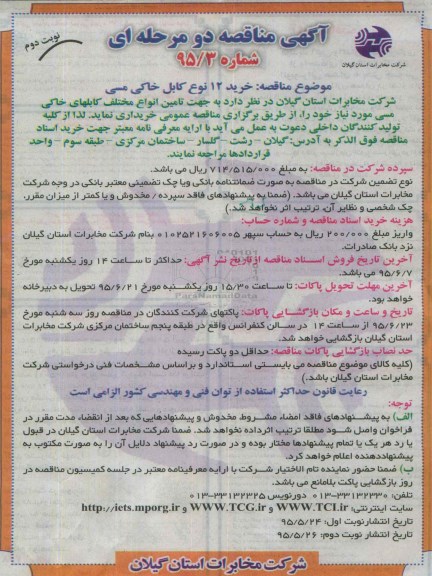 آگهی مناقصه دو مرحله ای
شماره ۹۵/۳
نوبت دوم
شرکت مخابرات استان گیلان
موضوع مناقصه: خرید ۱۲ نوع کابل خاکی مسی
شرکت مخابرات استان گیلان در نظر دارد به جهت تامین انواع مختلف کابلهای خاکی
مسی مورد نیاز خود را، از طریق برگزاری مناقصه عمومی خریداری نماید. لذا از کلیه
تولید کنندگان داخلی دعوت به عمل می آید با ارایه معرفی نامه معتبر جهت خرید اسناد
مناقصه فوق الذکر به آدرس: گیلان - رشت - گلسار - ساختمان مرکزی - طبقه سوم - واحد
قراردادها مراجعه نمایند.
سپرده شرکت در مناقصه: به مبلغ ۷۱۴/۵۱۵/۰۰۰ ریال می باشد.
نوع تضمین شرکت در مناقصه به صورت ضمانتنامه بانکی ویا چک تضمینی معتبر بانکی در وجه شرکت
مخابرات استان گیلان می باشد. (ضمنا به پیشنهادهای فاقد سپرده / مخدوش و یا کمتر از میزان مقرر،
چک شخصی و نظایر آن، ترتیب اثر نخواهد شد.)
هزینه خرید اسناد مناقصه و شماره حساب:
واریز مبلغ ۲۰۰/۰۰۰ ریال به حساب سپهر ۰۱۰۲۵۲۱۶۰۶۰۰۵ بنام شرکت مخابرات استان گیلان
نزد بانک صادرات.
آخرین تاریخ فروش اسناد مناقصه از تاریخ نشر آگهی: حداکثر تا ساعت ۱۴ روز یکشنبه مورخ
۹۵/۶/۷ می باشد.
آخرین مهلت تحویل پاکات: تا ساعت ۱۵/۳۰ روز یکشنبه مورخ ۹۵/۶/۲۱ تحویل به دبیرخانه
خواهد بود.
تاریخ و ساعت و مکان بازگشایی پاکات: پاکتهای شرکت کنندگان در مناقصه روز سه شنبه مورخ
۹۵/۶/۲۳ از ساعت ۱۴ در سالن کنفرانس واقع در طبقه پنجم ساختمان مرکزی شرکت مخابرات
استان گیلان بازگشایی خواهد شد.
حد نصاب بازگشایی پاکات مناقصه: حداقل دو پاکت رسیده
(کلیه کالای موضوع مناقصه می بایستی استاندارد و براساس مشخصات فنی درخواستی شرکت
مخابرات استان گیلان باشد.)
رعایت قانون حداکثر استفاده از توان فنی و مهندسی کشور الزامی است
توجه:
الف) به پیشنهادهای فاقد امضاء، مشروط، مخدوش و پیشنهادهایی که بعد از انقضاء مدت مقرر در
فراخوان واصل شود مطلقا ترتیب اثرداده نخواهد شد. ضمنا شرکت مخابرات استان گیلان در قبول
یا رد هر یک یا تمام پیشنهادها مختار بوده و در صورت رد پیشنهاد دلایل آن را به صورت مکتوب به
پیشنهاددهنده اعلام خواهد کرد.
ب) ضمنا حضور نماینده تام الاختیار شرکت با ارایه معرفینامه معتبر در جلسه کمیسیون مناقصه در
روز بازگشایی پاکت بلامانع می باشد.
تلفن: ۳۳۱۳۲۲۳۰-۰۱۳ دورنویس ۳۳۱۳۲۲۲۵-۰۱۳
سایت اینترنتی: WWW.TCI.ir و WWW.TCG.ir و http://iets.mporg.ir
تاریخ انتشارنوبت اول: ۹۵/۵/۲۴
تاریخ انتشار نوبت دوم: ۹۵/۵/۲۶
شرکت مخابرات استان گیلان